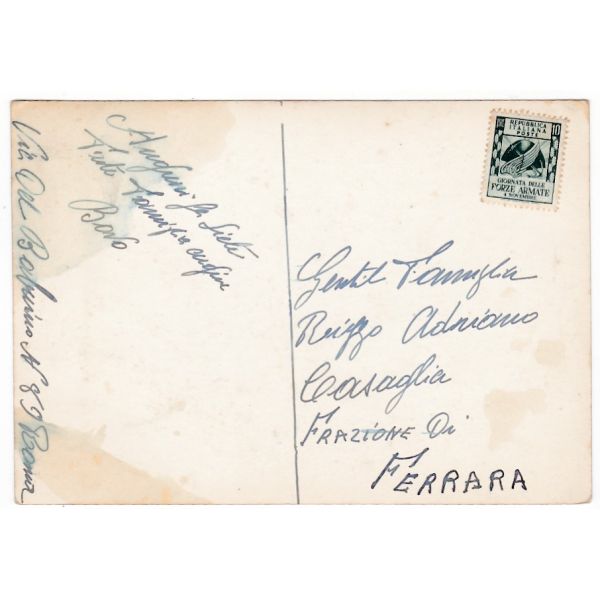 Auguri
Famiglia auguri
Via Del N 89 Roma
10
REPUBBLICA
ITALIANA
POSTE
GIORNATA DELLE
FORZE ARMATE
4 NOVEMBRE
Gentil Famiglia
Rizzo Adriano
Casaglia
FRAZIONE Di
FERRARA